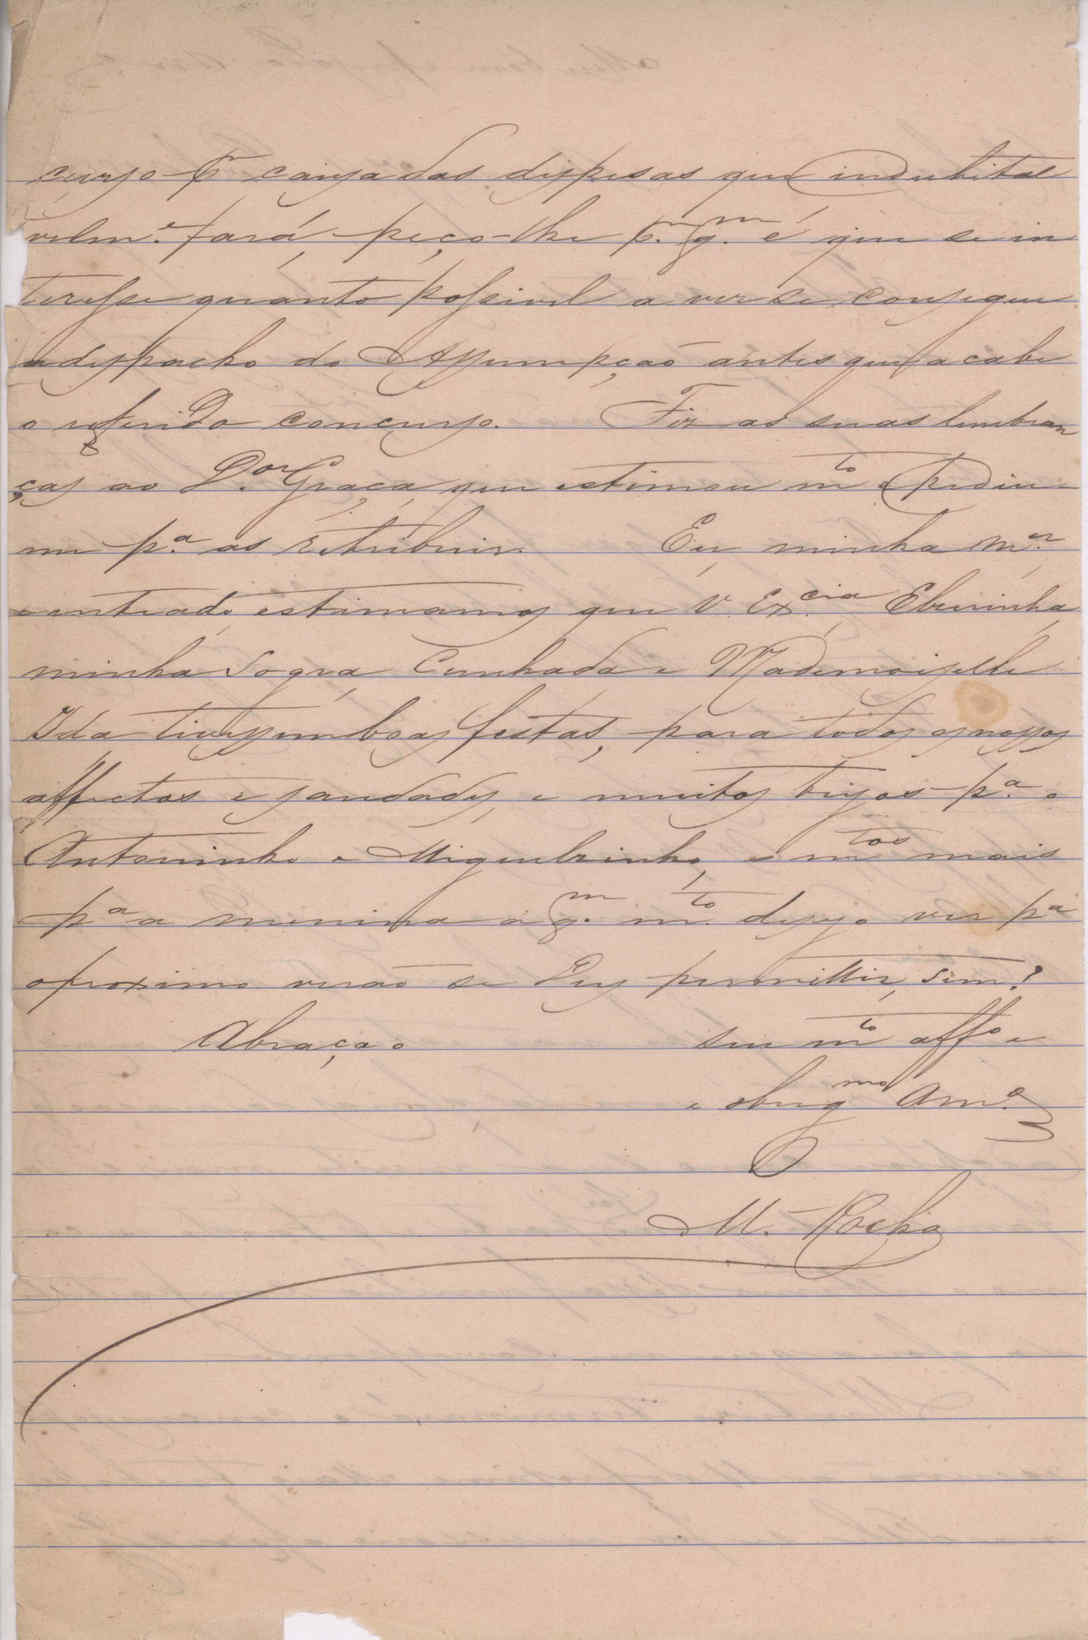 curso p.r causa das dispesas que indubita
velm.e fará, peço-lhe p.r q.m é que se in
teresse quanto possivel a ver se consegue
o despacho do Assumpção antes que acabe
o referido concurso. Fiz as suas lembran
ças ao D.or Graça, que estimou m.to e pediu
me p.a as retribuir. Eu, minha M.er
e entiado estimamos que V. Ex.cia,
minha Sogra, Cunhada e Mademoiselle
Ida tivessem boas festas, para todos os nossos
affectos e saudades, e muitos bijos p.a o
Antoninho e Miguelzinho, e m.tos mais
p.a a menina a q.m m.to desejo ver p.a
o proximo verão se Deus permittir, sim?
Abraça o seu m.to aff.o e
e obrig.mo Am.o
M. Rocha